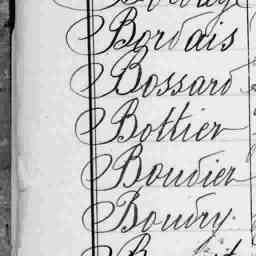 Bordais
Bossard
Bottier
Boudier
Boudry.